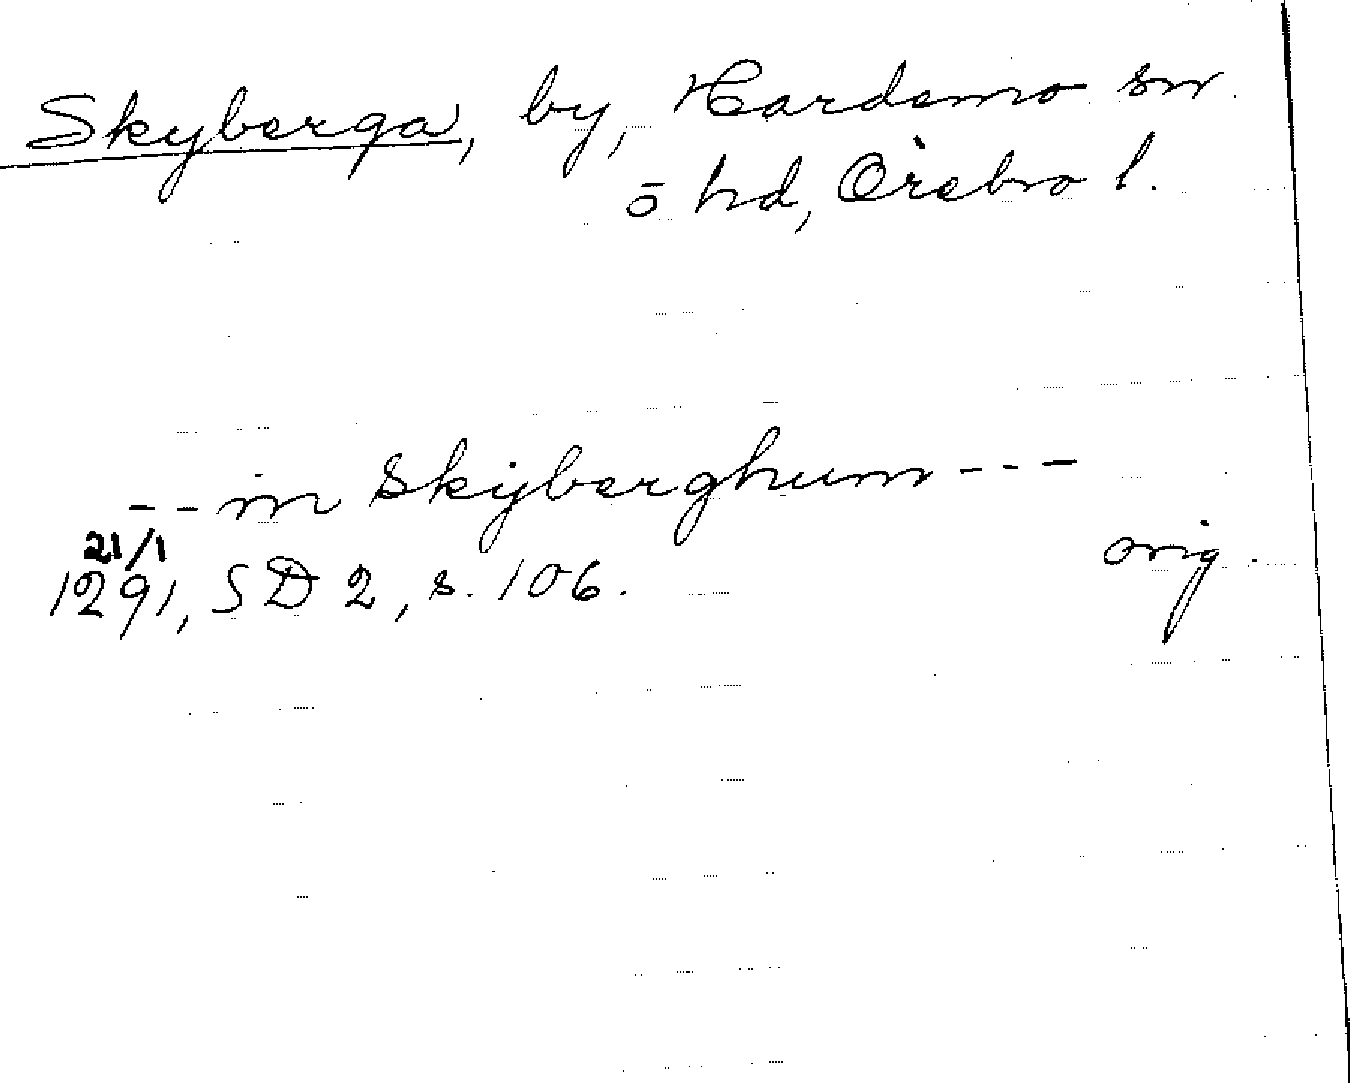 Skyberga, by, Hardemo sn.
ō hd, Örebro l.
-- in Skÿberghum ---
21/1
1291, SD 2, s. 106. orig.